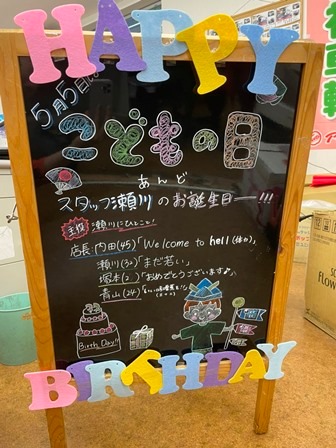 HAPPY
5月5日は
こどもの日
あんど
スタッフ瀬川のお誕生日ー!!!
主役 瀬川にひとこと!
店長・内田(45)「Welcome to hell(体が)」
瀬川(32)「まだ若い」
塚本(2)「おめでとうございます♪」
青山(24)
Birth Day!!
BIRTHDAY